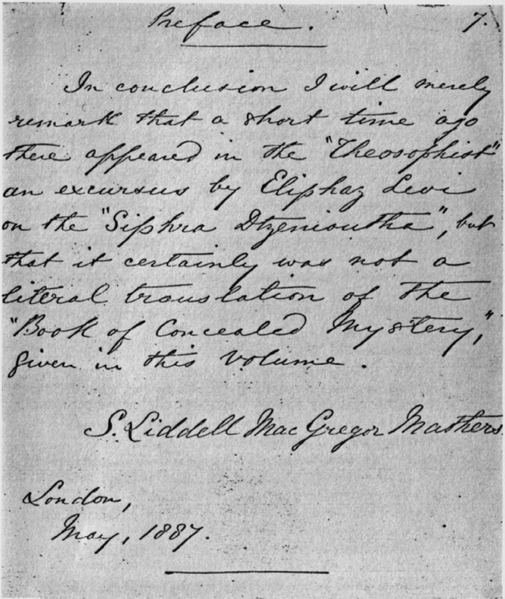 Preface. 7.
In conclusion I will merely
remark that a short time ago
there appeared in the "Theosophist"
an excursus by Eliphaz Levi
on the "Siphra Dtzenioutha", but
that it certainly was not a
literal translation of the
"Book of Concealed Mystery,"
given in this volume.
S. Liddell Mac Gregor Mathers.
London,
May, 1887.